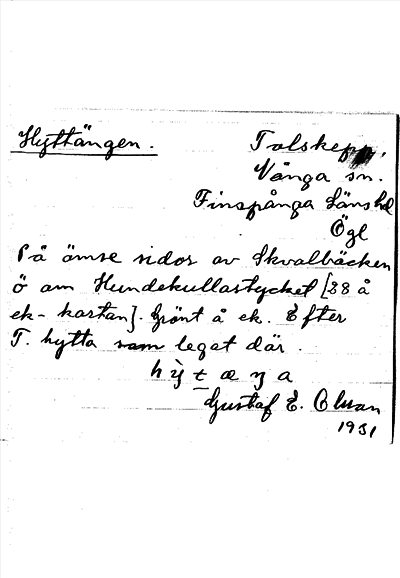 Hyttängen.
Tolskepp,
Vånga sn.
Finspånga Länshd
Ögl
På ömse sidor av Skvalbäcken
ö om Hundekullastycket [38 å
ek-kartan]. Grönt å ek. Efter
T. hytta som legat där.
hỳtæŋa
Gustaf E. Olsson
1931